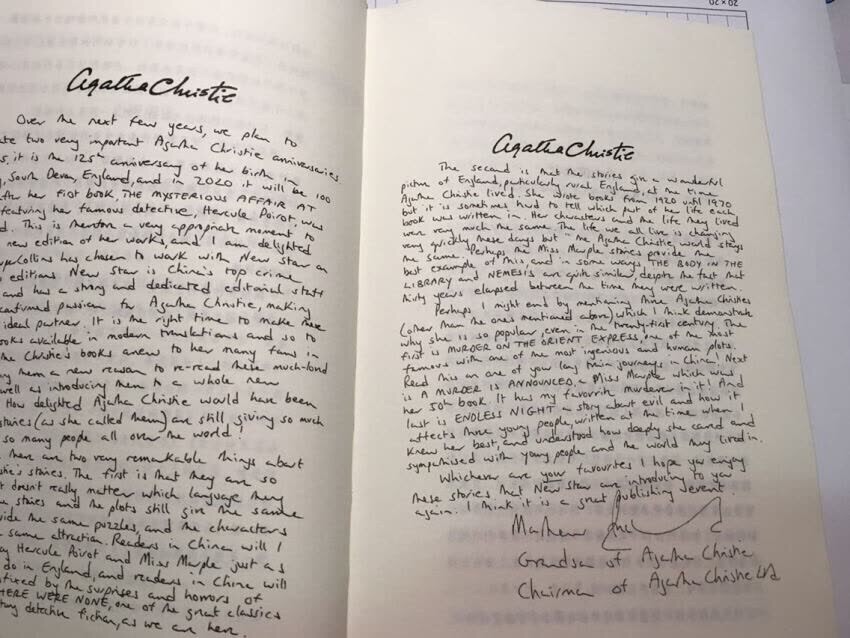 Agatha Christie
Over the next few years, we plan to
ate two very important Agatha Christie anniversaries.
s, it is the 125th anniversary of her birth in
, South Devon, England, and in 2020 it will be 100
after her first book, THE MYSTERIOUS AFFAIR AT
featuring her famous detective, Hercule Poirot was
d. This is therefore a very appropriate moment to
new edition of her works, and I am delighted
perCollins has chosen to work with New Star on
editions. New Star is China's top crime
and has a strong and dedicated editorial staff
confirmed passion for Agatha Christie, making
ideal partner. It is the right time to make these
ooks available in modern translations and so to
me Christie's books anew to her many fans in
ng them a new reason to re-read these much-loved
well as introducing them to a whole new
How delighted Agatha Christie would have been
stories (as she called them) are still giving so much
so many people all over the world!
there are two very remarkable things about
stie's stories. The first is that they are so
t doesn't really matter which language they
e stories and the plots still give the same
vide the same puzzles, and the characters
same attraction. Readers in China will I
ay Hercule Poirot and Miss Marple just as
do in England, and readers in China will
by the surprises and horrors of
HERE WERE NONE, one of the great classics
detective fiction, as we are here.
Agatha Christie
The second is that the stories give a wonderful
picture of England, particularly rural England, at the time
Agatha Christie lived. She wrote books from 1920 until 1970
but it is sometimes hard to tell which part of her life each
book was written in. Her characters and the life they lived
were very much the same. The life we all live is changing
very quickly these days but the Agatha Christie world stays
the same. Perhaps the Miss Marple stories provide the
best example of this, and in some ways THE BODY IN THE
LIBRARY and NEMESIS are quite similar, despite the fact that
thirty years elapsed between the time they were written.
Perhaps I might end by mentioning three Agatha Christies
(other than the ones mentioned above) which I think demonstrate
why she is so popular, even in the twenty-first century. The
first is MURDER ON THE ORIENT EXPRESS, one of the most
famous with one of the most ingenious and human plots.
Read this on one of your long train journeys in China! Next
is A MURDER IS ANNOUNCED, a Miss Marple which was
her 50th book. It has my favourite murderer in it! And
last is ENDLESS NIGHT a story about evil and how it
affects three young people, written at the time when I
knew her best, and understood how deeply she cared and
sympathised with young people and the world they lived in.
Whichever are your favourites I hope you enjoy
these stories that New Star are introducing to you
again. I think it is a great publishing event.
Mathew
Grandson of Agatha Christie
Chairman of Agatha Christie Ltd
20×20